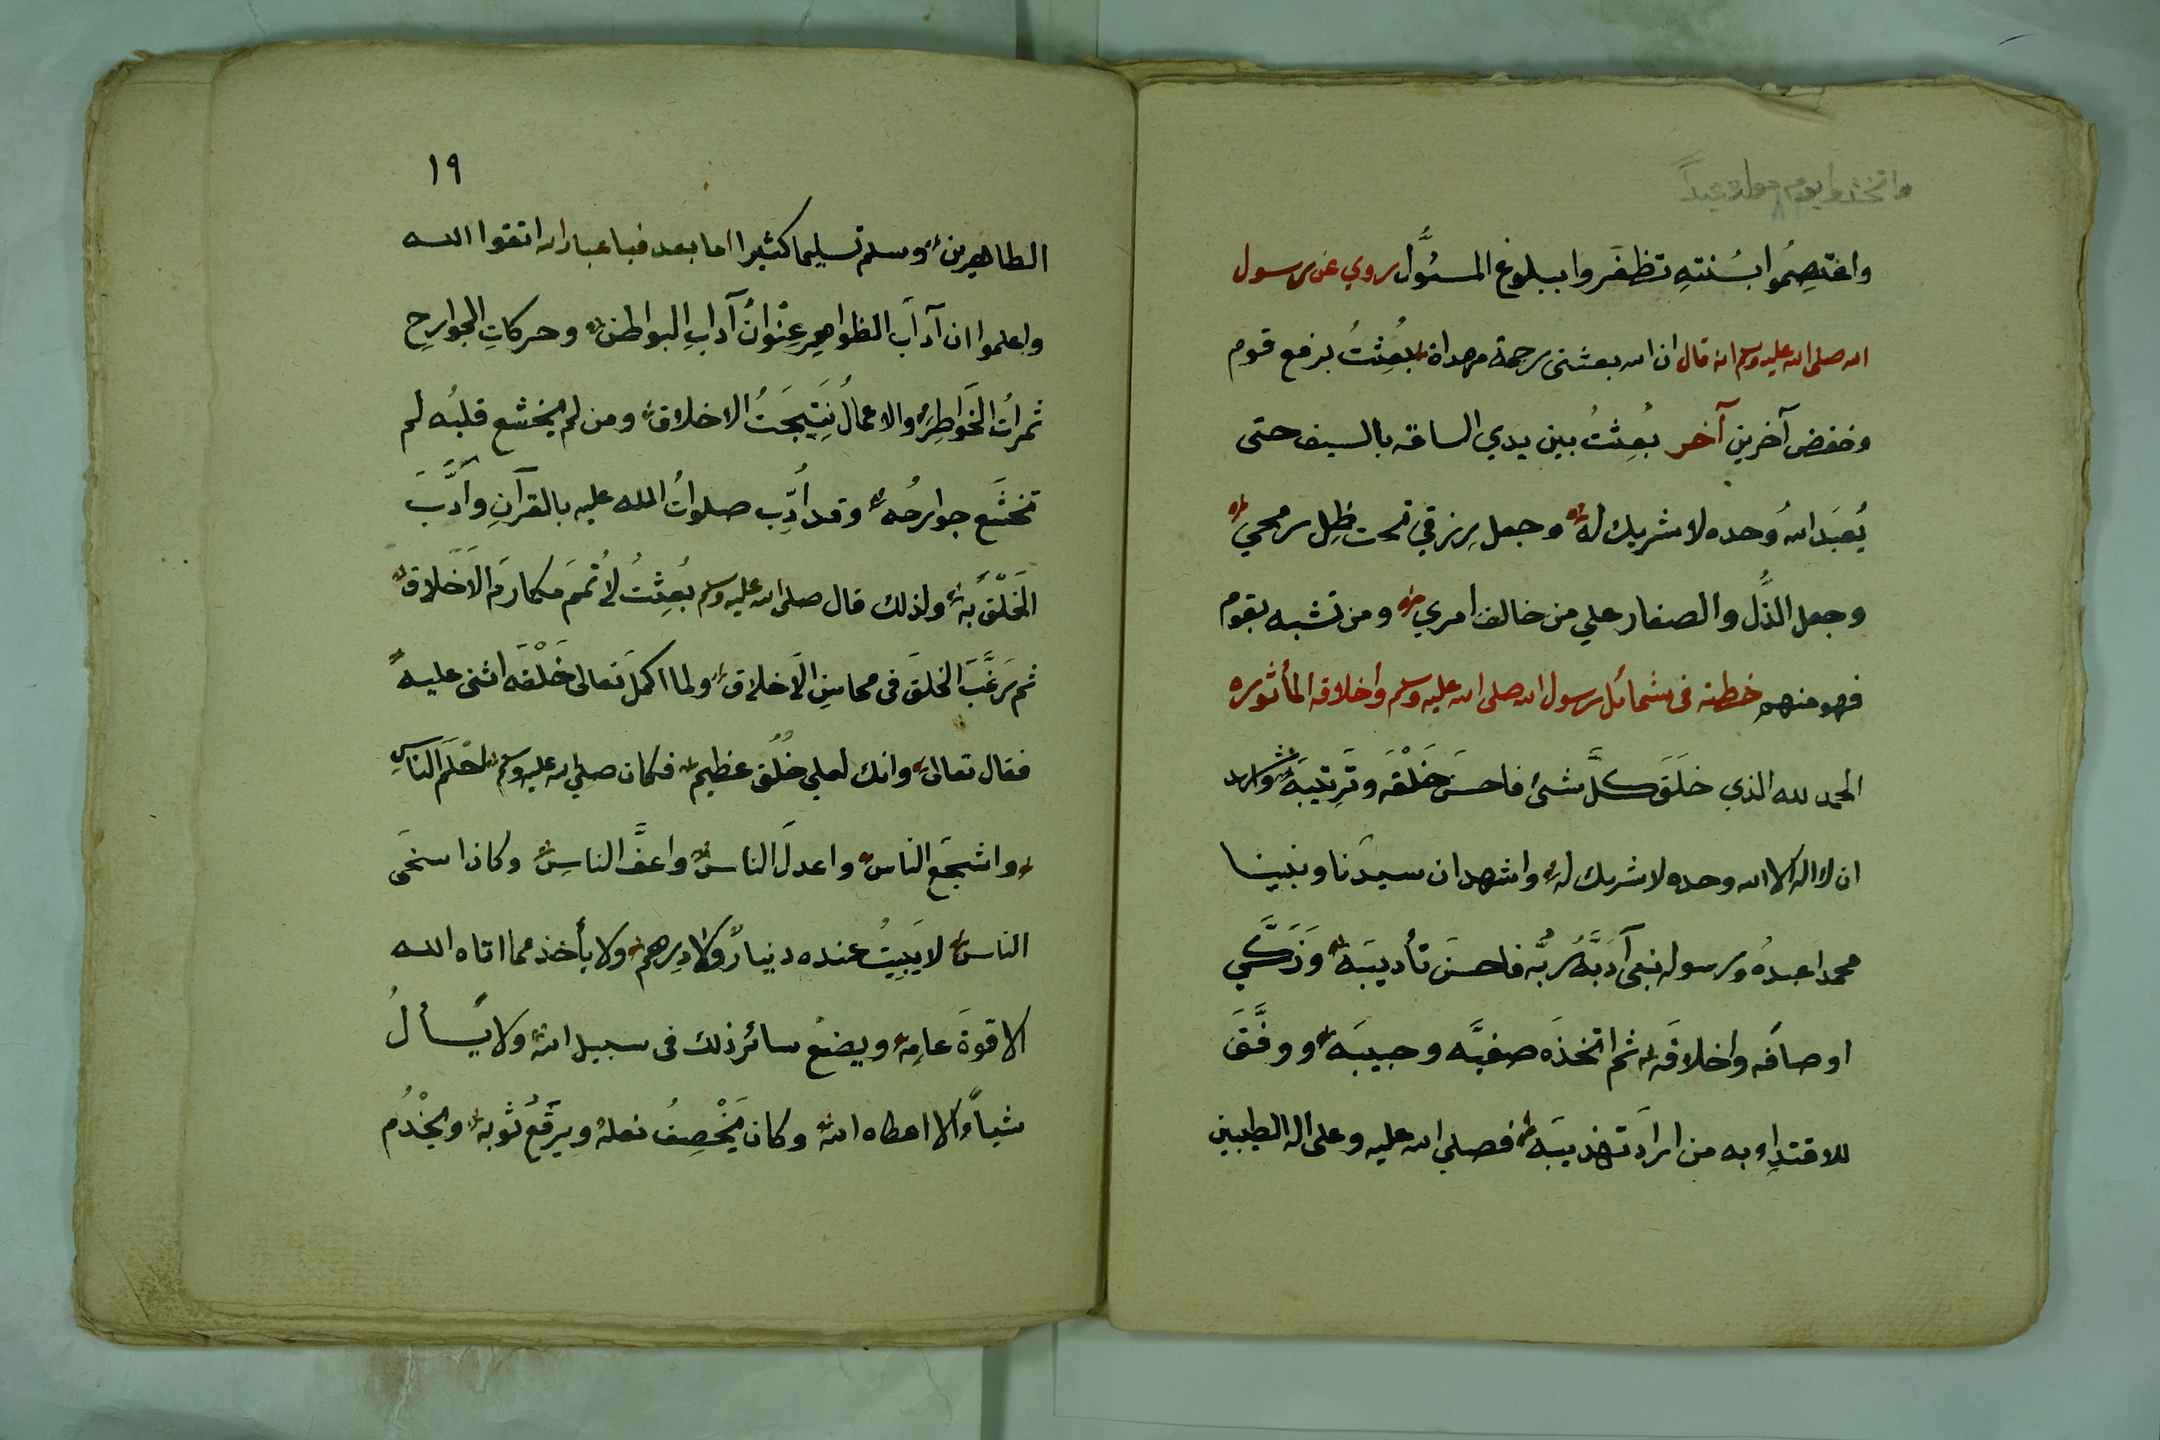 واتخذوا يوم مولده عيداً
واعتصِمُوا بسُنتهِ تظفَروا ببلوغ المسئُول روي عن رسول
الله صلى الله عليه وسلم انه قال ان الله بعثنى رحمة مهداة بُعِثتُ برفع قوم
وخفض آخرين آخر بُعِثتُ بين يدي الساعة بالسيف حتى
يُعبَد اللهُ وحده لا شريك له وجعل رزقي تحت ظِل رمحي
وجعل الذُّل والصغار علي من خالف امري ومن تشبه بقوم
فهو منهم خطبة فى شمائل رسول الله صلى الله عليه وسلم واخلاقه المأثوره
الحمد لله الذي خلَقَ كلَّ شئ فاحسَن خلْقَه وتَرتيبَهُ واشهد
ان لا اله الا الله وحده لا شريك له واشهد ان سيدَنا ونبينا
محمداً عبدهُ ورسوله نبى أدَّبَهُ ربُّه فاحسنَ تأديبَه وَزَكَّي
اوصافَه واخلاقَه ثم اتخذَه صفيَّه وحبيبَه ووفَّقَ
للاقتداِء به من ارادَ تهذيبَه فصلي الله عليه وعلى اله الطيبين
١٩
الطاهرين وسلم تسليما كثيرا اما بعد فيا عباد الله اتقوا الله
واعلموا ان آدابَ الظواهِر عِنْوانُ آدابِ البواطن وحركاتِ الجوارحِ
ثمراتُ الخَواطِرِ والاعمالُ نَتِيجَتُ الاخلاق ومن لم يخشع قلبُه لم
تخشَع جوارحُه وقد أُدِّب صلواتُ الله عليه بالقرآنِ وأدَّبَ
الخَلْقَ به ولذلك قال صلى الله عليه وسلم بُعِثتُ لأُتممَ مكارمَ الاَخلاق
ثم رَغَّبَ الخلقَ فى محاسِن الاَخلاق ولما اكملَ تعالى خَلْقَه اثنى عليه
فقال تعالى وانك لعلي خُلُق عظيم فكان صلي الله عليه وسلم احْلَمَ الناسِ
واشجَع الناس واعدلَ الناس واعفَّ الناسِ وكان اسخَى
الناس لا يَبِيتُ عنده دينارٌ ولا دِرهم ولا يأخذ مما اتاه الله
الا قوةَ عامِه ويضعُ سائر ذلك فى سبيل الله ولا يُسألُ
شيأً الا اعطاه الله وكان يَخْصِفُ نعله ويَرقَعُ ثوبه ويخْدُم